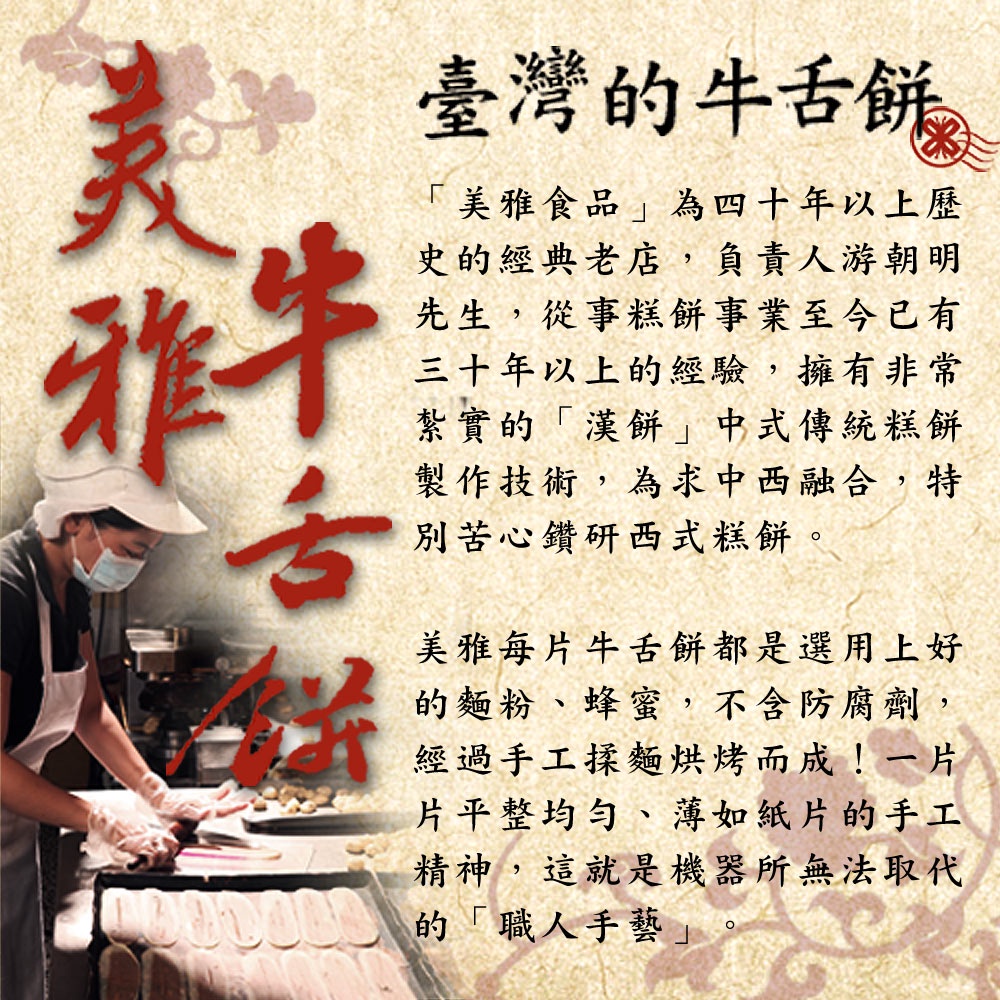 美雅
牛舌餅
臺灣的牛舌餅
「美雅食品」為四十年以上歷
史的經典老店，負責人游朝明
先生，從事糕餅事業至今已有
三十年以上的經驗，擁有非常
紮實的「漢餅」中式傳統糕餅
製作技術，為求中西融合，特
別苦心鑽研西式糕餅。
美雅每片牛舌餅都是選用上好
的麵粉、蜂蜜，不含防腐劑，
經過手工揉麵烘烤而成！一片
片平整均勻、薄如紙片的手工
精神，這就是機器所無法取代
的「職人手藝」。